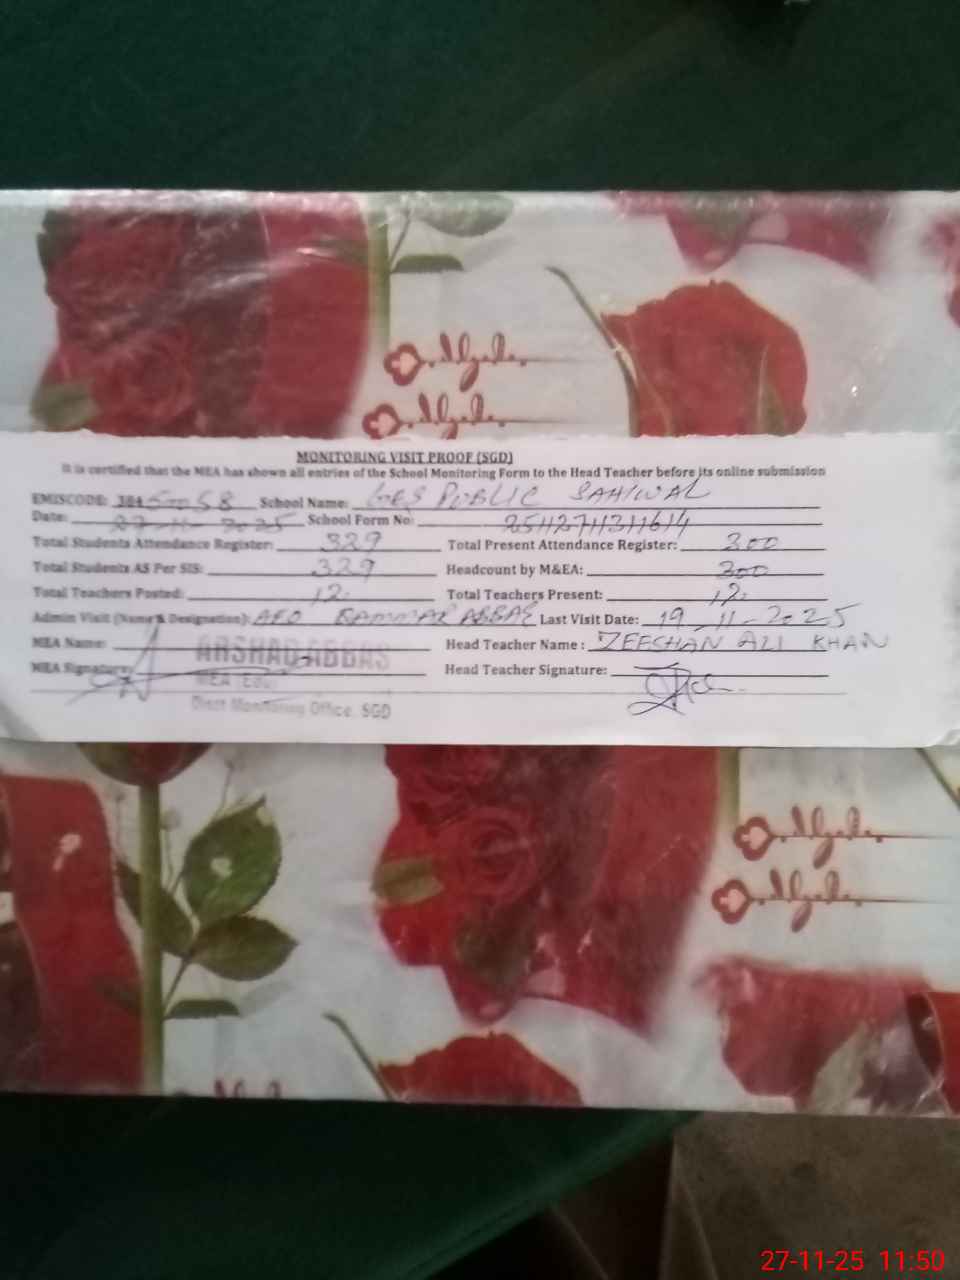 MONITORING VISIT PROOF (SGD)
It is certified that the MEA has shown all entries of the School Monitoring Form to the Head Teacher before its online submission
EMISCODE: 384 50058 School Name: GES PUBLIC SAHIWAL
Date: 27-11-2025 School Form No: 25112711311614
Total Students Attendance Register: 329 Total Present Attendance Register: 300
Total Students AS Per SIS: 329 Headcount by M&EA: 300
Total Teachers Posted: 12 Total Teachers Present: 12
Admin Visit (Name & Designation): AEO QAMMAR ABBAS Last Visit Date: 19-11-2025
MEA Name: ARSHAD ABBAS Head Teacher Name : ZEESHAN ALI KHAN
MEA Signature: MEA (Edu) Head Teacher Signature:
Distt Monitoring Office, SGD
27-11-25 11:50